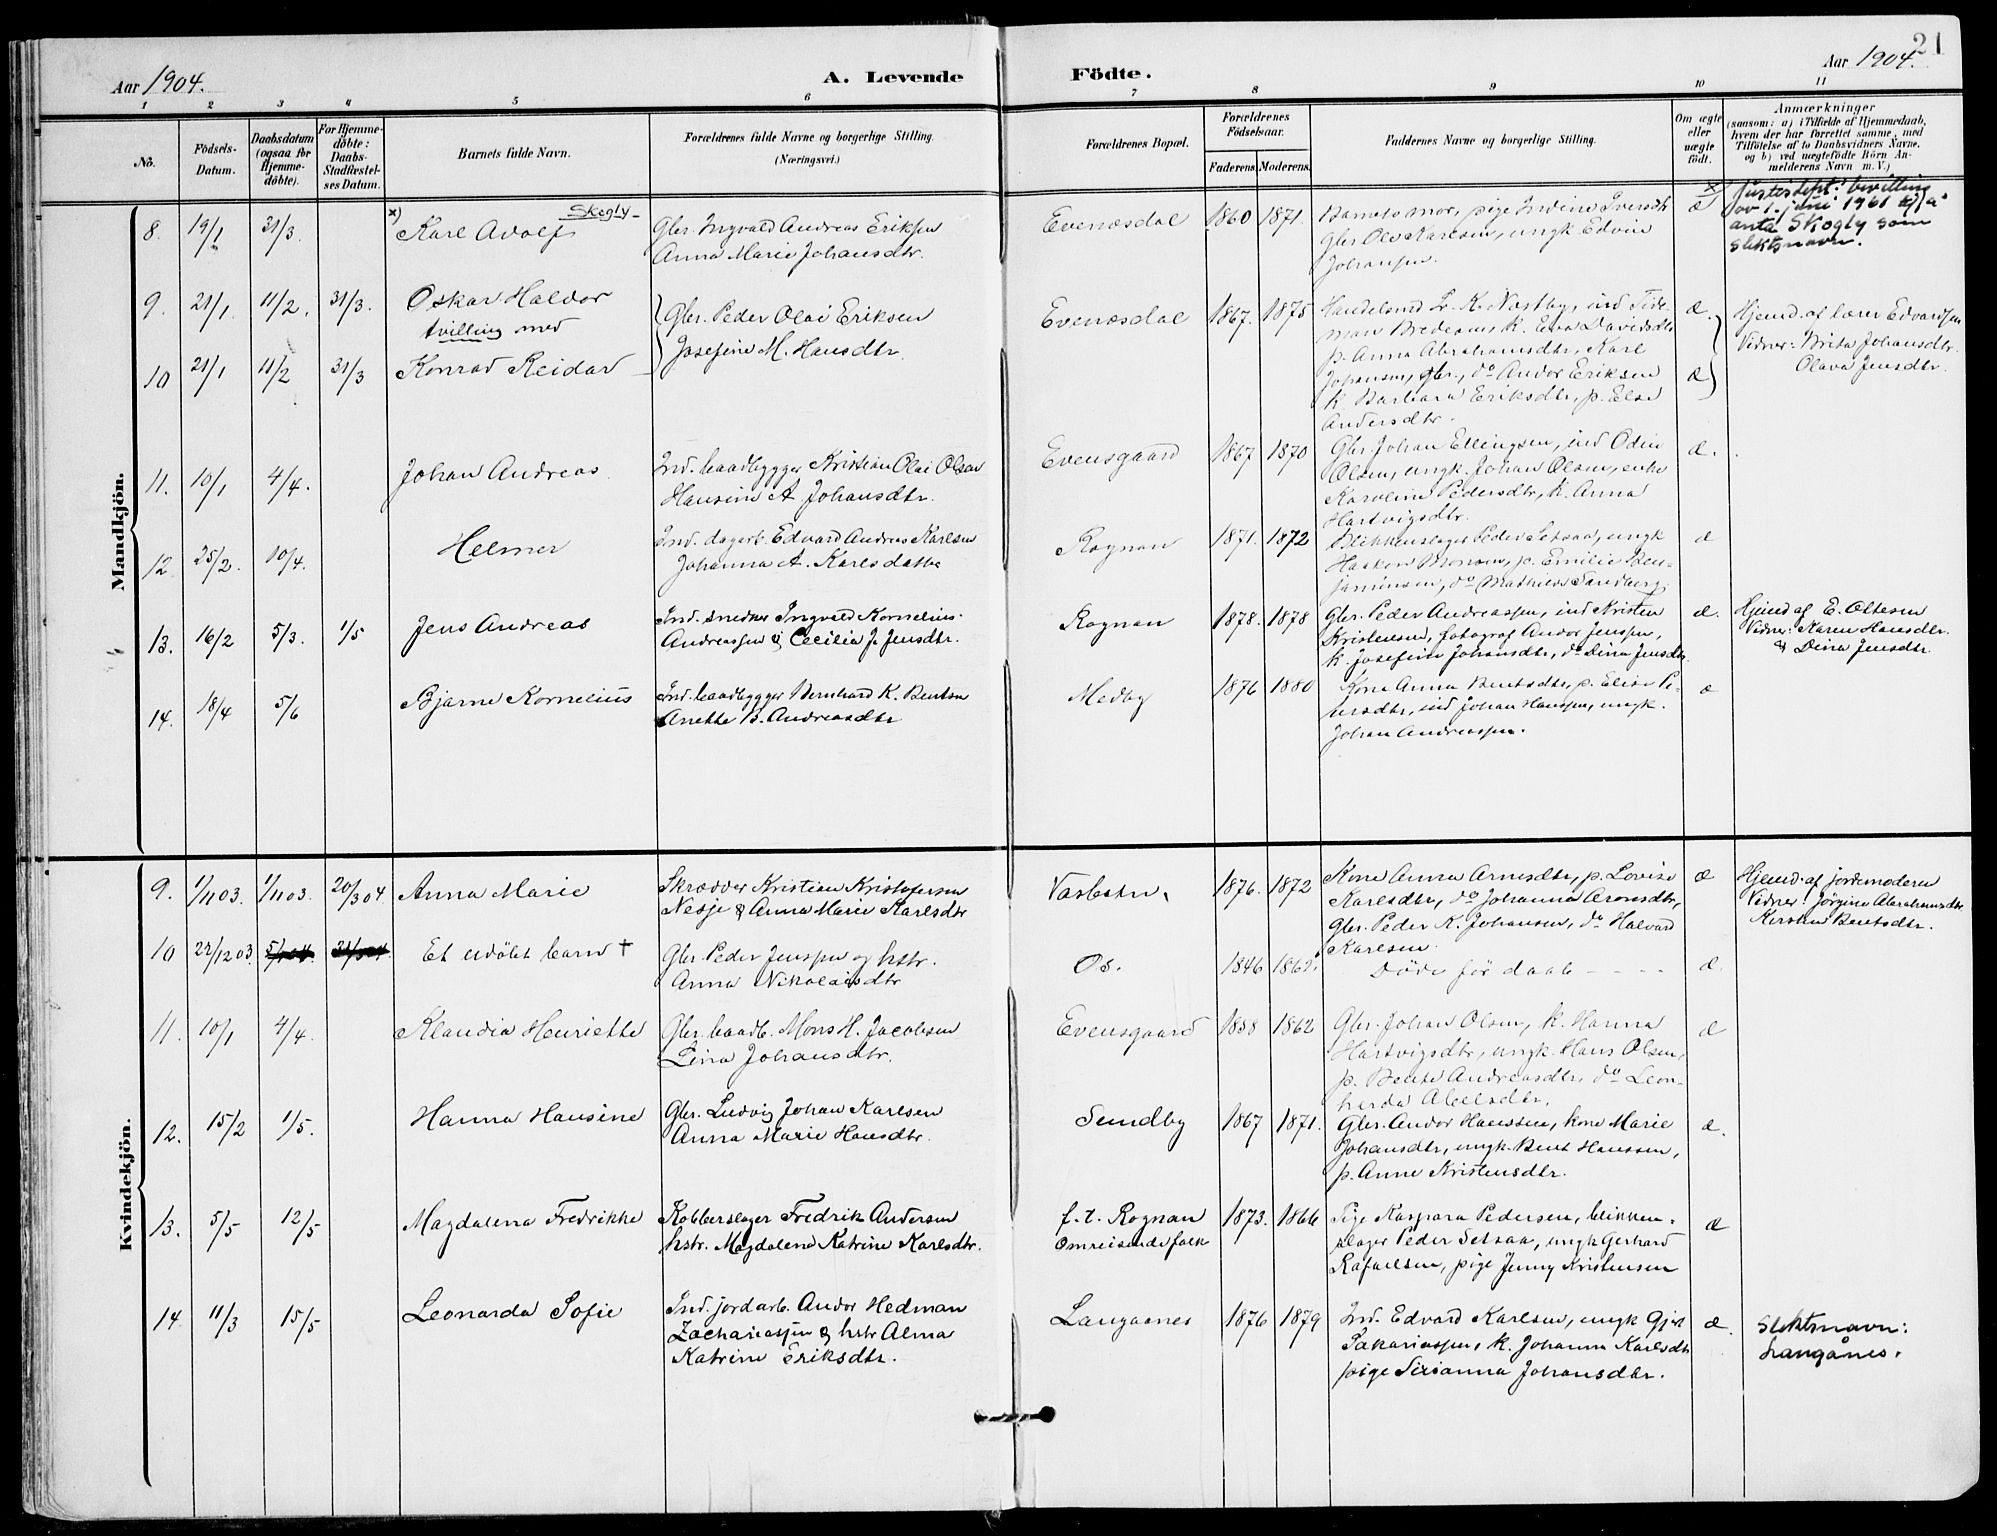 21
Aar 1904.
A. Levende
Födte.
Aar 1904.
1 2 3 4 5 6 7 8 9 10 11
No.
Födsels-
Datum.
Daabsdatum
(ogsaa for
Hjemme-
döbte).
For Hjemme-
döbte:
Daabs-
Stadfæstel-
ses Datum.
Barnets fulde Navn.
Forældrenes fulde Navne og borgerlige Stilling.
(Næringsvei.)
Forældrenes Bopæl.
Forældrenes
Födselsaar.
Faderens. Moderens.
Faddernes Navne og borgerlige Stilling.
Om ægte
eller
uægte
födt.
Anmærkninger
(saasom: a) i Tilfælde af Hjemmedaab,
hvem der har forrettet samme, med
Tilföielse af to Daabsvidners Navne,
og b) ved uægtefödte Börn An-
melderens Navn m. V.)
Mandkjön.
8. 19/1 31/3.
x) Skogly
Karl Adolf
Gbr. Ingvald Andreas Eriksen
Anna Marie Johansdtr.
Evenæsdal 1860 1871.
Barnets mor, pige Indine Iversdtr
Gbr Ole Karlsen, ungk Edvin
Johansen.
æ
x) Justisdept. bevilling
av 1. juni 1961 til å
anta Skogly som
slektsnavn.
9. 21/1 11/2. 31/3.
Oskar Haldor
tvilling med
Gbr. Peder Olai Eriksen
Josefine M. Hansdtr.
Evenæsdal 1867. 1875
10 21/1 11/2 31/3
Konrad Reidar
Handelsmd L. K. Næstby, ind Tide-
man Bredesen, k. Eva Davidsdtr
p. Anna Abrahamsdtr, Karl
Johansen, gbr., do Andor Eriksen
k. Barbara Eriksdtr, p. Else
Andersdtr.
æ.
æ
Hjemd. af lærer Edvardsen
Vidner: Brita Johansdtr.
Olava Jensdtr.
11. 10/1 4/4.
Johan Andreas
Ind. baadbygger Kristian Olai Olsen
Hansine A. Johansdtr.
Evensgaard 1867 1870
Gbr Johan Ellingsen, ind Odin
Olsen, ungk. Johan Olsen, enke
Karoline Pedersdtr, k. Anna
Hartvigsdtr.
æ.
12. 25/2. 10/4.
Helmer
Ind. dagarb. Edvard Andreas Karlsen
Johanna A. Karlsdatter
Rognan 1871. 1872
Blikkenslager Peder Setsaa, ungk
Haakon Monsen, p. Emilie Ben-
jaminsen, do Mathilde Sandberg.
æ
13. 16/2 5/3. 1/5
Jens Andreas
Ind. snedker Ingvald Kornelius
Andreassen & Cecilia J. Jensdtr.
Rognan 1878. 1878
Gbr. Peder Andreassen, ind Kristen
Kristensen, fotograf Andor Jenssen,
k. Josefine Johansdtr, do Dina Jensdtr
æ.
Hjemd af E. Ottesen
Vidner: Karen Hansdtr.
& Dina Jensdtr.
14. 18/4 5/6
Bjarne Kornelius
Ind. baadbygger Bernhard K. Bentsen
Anette B. Andreasdtr
Medby 1876 1880
Kone Anna Bentsdtr, p. Elise Pe-
dersdtr, ind Johan Hanssen, ungk.
Johan Andreassen.
æ
Kvindekjön.
9. 1/11 03. 1/11 03. 20/3 04
Anna Marie
Skrædder Kristian Kristofersen
Nesje & Anna Marie Karlsdtr
Vasbotn. 1876. 1872
Kone Anna Arnesdtr, p. Lovise
Karlsdtr, do Johanna Aronsdtr,
Gbr. Peder K. Johansen, do Halvard
Karlsen.
æ
Hjemd. af jordemoderen
Vidner: Jørgine Abrahamsdtr
Kirsten Bentsdtr.
10 22/12 03.
Et udøbt barn †
Gbr. Peder Jenssen og hstr.
Anna Nikolaisdtr
Os. 1846 1862.
Døde før daab
æ.
11. 10/1 4/4.
Klaudia Henriette
Gbr. baadb. Mons H. Jacobsen
Lina Johansdtr.
Evensgaard 1858 1862
Gbr. Johan Olsen, k. Hanna
Hartvigsdtr, ungk. Hans Olsen,
p. Bente Andreasdtr, do Leon-
harda Abelsdtr.
æ
12. 15/2 1/5.
Hanna Hansine
Gbr. Ludvig Johan Karlsen
Anna Marie Hansdtr.
Sundby 1867 1871.
Gbr. Andor Hanssen, kone Marie
Johansdtr, ungk. Bent Hanssen,
p. Anne Kristensdtr.
æ.
13. 5/5 12/5
Magdalena Fredrikke
Kobberslager Fredrik Andersen
hstr. Magdalena Katrine Karlsdtr.
f. t. Rognan
Omreisende folk
1873. 1866
Pige Kaspara Pedersen, blikken-
slager Peder Setsaa, ungk Gerhard
Rafaelsen, pige Jenny Kristensen
æ
14. 11/3 15/5
Leonarda Sofie
Ind. jordarb. Andor Hedman
Zachariassen & hstr Alma
Katrine Eriksdtr.
Langaanes 1876 1879
Ind. Edvard Karlsen, ungk
Sakariassen, k. Johanna Karlsdtr
pige Sirianna Johansdtr.
æ.
Slektsnavn:
Langånes.